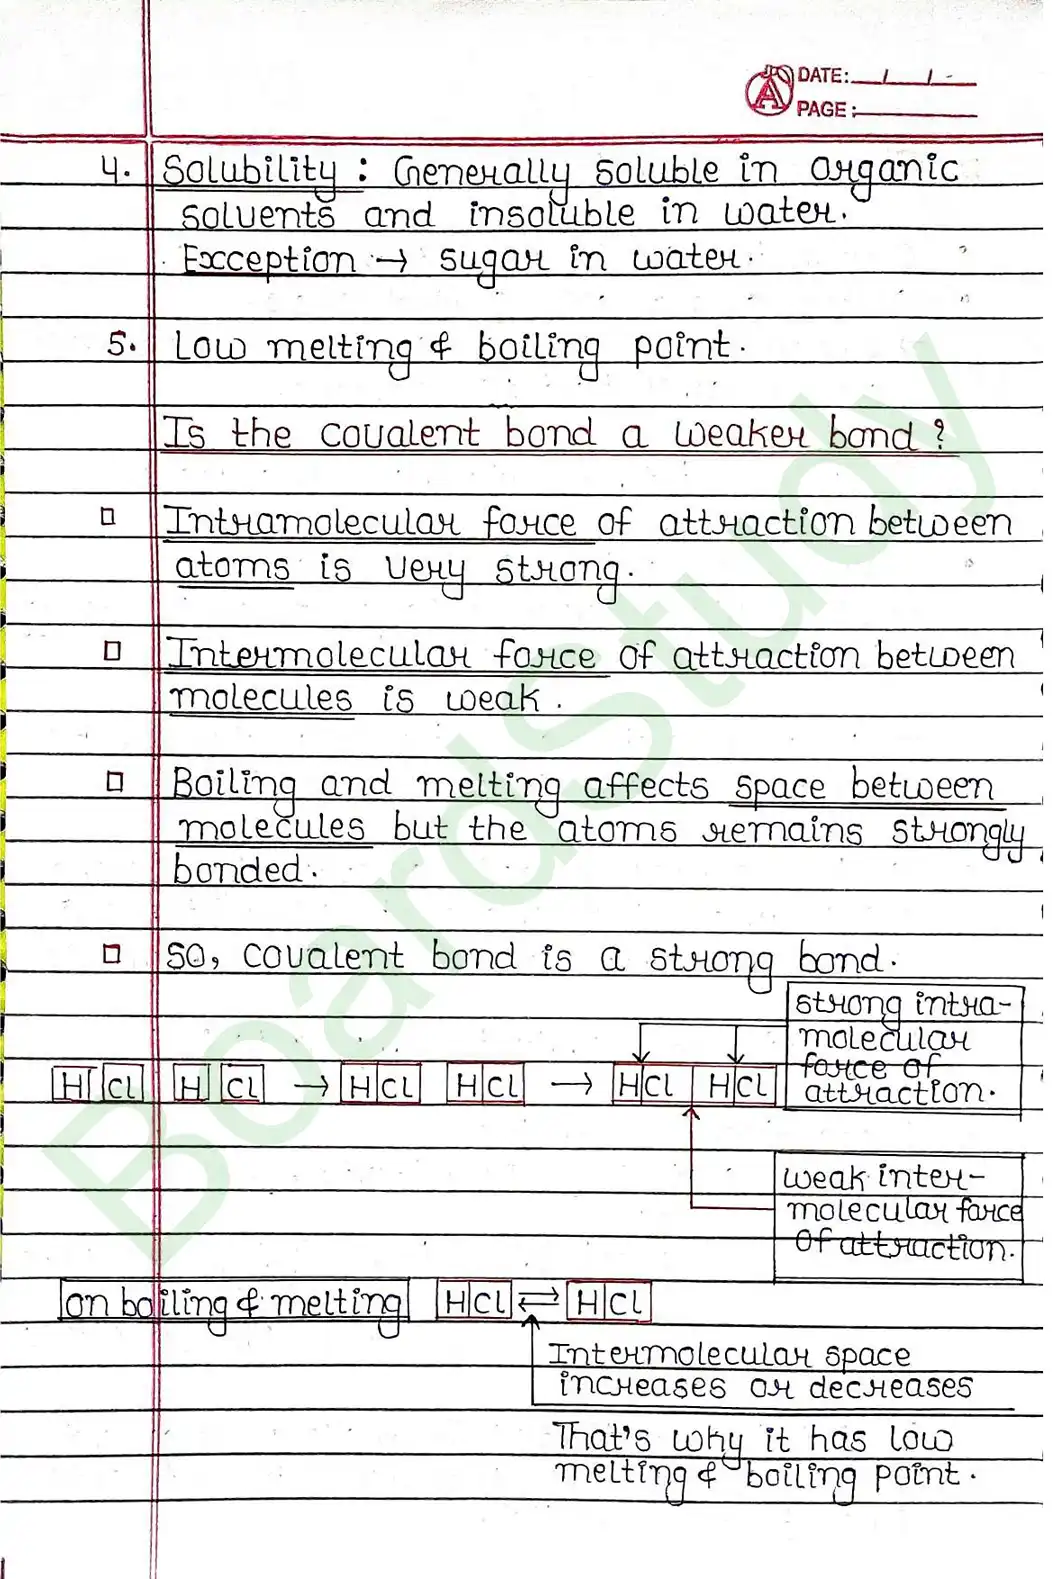 DATE: / / -
PAGE:
4. Solubility : Generally soluble in organic
solvents and insoluble in water.
Exception → sugar in water.
5. Low melting & boiling point.
Is the covalent bond a weaker bond?
□ Intramolecular force of attraction between
atoms is very strong.
□ Intermolecular force of attraction between
molecules is weak.
□ Boiling and melting affects space between
molecules but the atoms remains strongly
bonded.
□ So, covalent bond is a strong bond.
strong intra-
molecular
force of
attraction.
H Cl H Cl → H Cl H Cl → H Cl H Cl
weak inter-
molecular force
of attraction.
on boiling & melting H Cl ⇌ H Cl
Intermolecular space
increases or decreases
That's why it has low
melting & boiling point.
BoardStudy